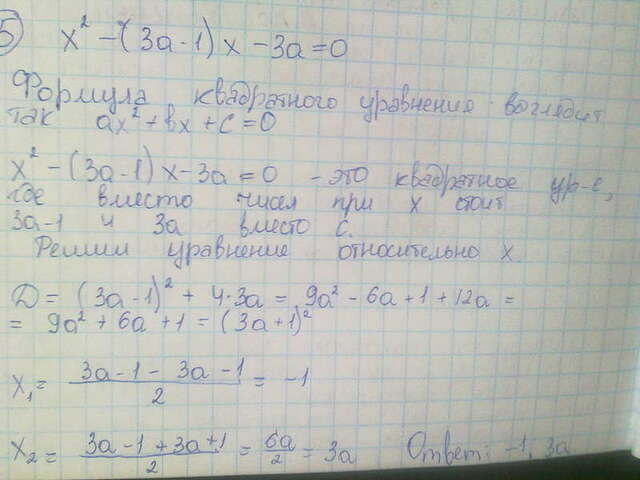 5) x² - (3a-1)x - 3a = 0
Формула квадратного уравнения выглядит
так ax² + bx + c = 0
x² - (3a-1)x - 3a = 0 - это квадратное ур-е,
где вместо чисел при x стоит
3a-1 и 3a вместо c.
Решим уравнение относительно x.
D = (3a-1)² + 4·3a = 9a² - 6a + 1 + 12a =
= 9a² + 6a + 1 = (3a+1)²
x₁ = (3a-1-3a-1)/2 = -1
x₂ = (3a-1+3a+1)/2 = 6a/2 = 3a Ответ: -1, 3a